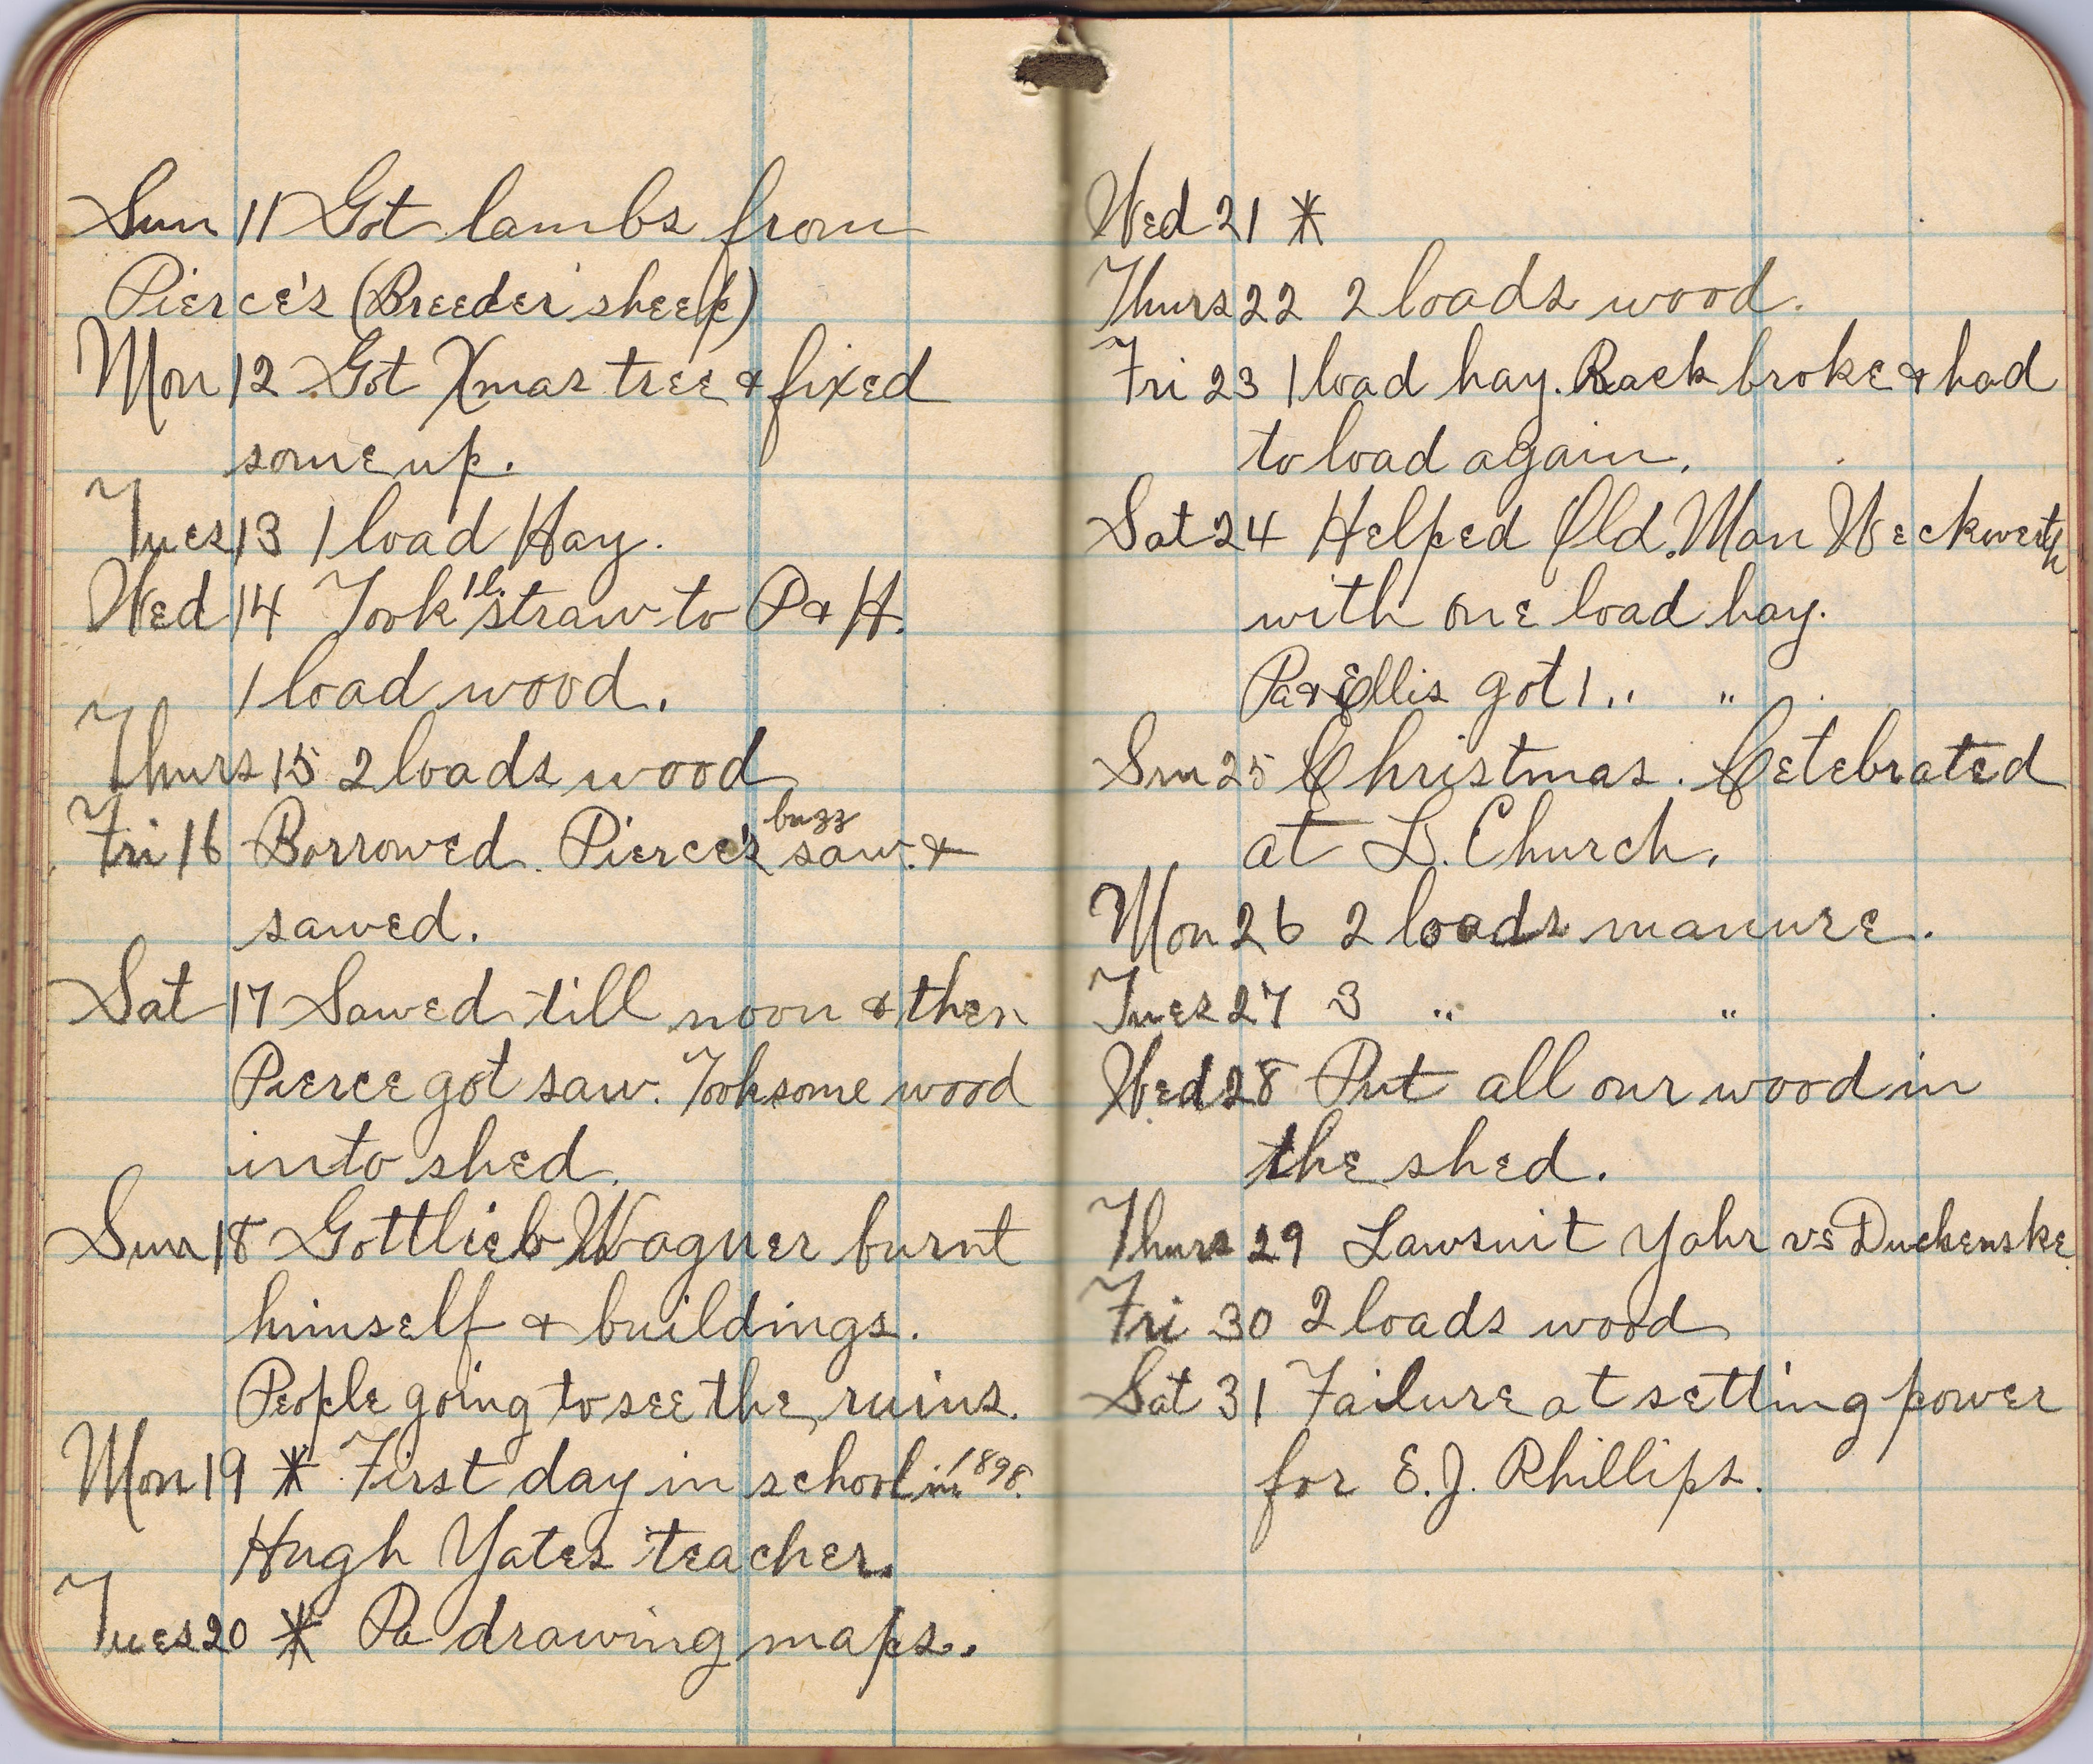 Sun 11 Got lambs from
Pierce's (Breeder sheep)
Mon 12 Got Xmas tree & fixed
some up.
Tues 13 1 load Hay.
Wed 14 Took 1 l. straw to P & H.
1 load wood.
Thurs 15 2 loads wood
Fri 16 Borrowed Pierce's buzz saw &
sawed.
Sat 17 Sawed till noon & then
Pierce got saw. Took some wood
into shed.
Sun 18 Gottlieb Wagner burnt
himself & buildings.
People going to see the ruins.
Mon 19 * First day in school in 1898.
Hugh Yates teacher.
Tues 20 * Pa drawing maps.
Wed 21 *
Thurs 22 2 loads wood.
Fri 23 1 load hay. Rack broke & had
to load again.
Sat 24 Helped Old Man Weckwerth
with one load hay.
Pa & Ellis got 1 " "
Sun 25 Christmas. Celebrated
at L. Church.
Mon 26 2 loads manure.
Tues 27 3 " "
Wed 28 Put all our wood in
the shed.
Thurs 29 Lawsuit Yahr vs Duckenske
Fri 30 2 loads wood
Sat 31 Failure at setting power
for E.J. Phillips.